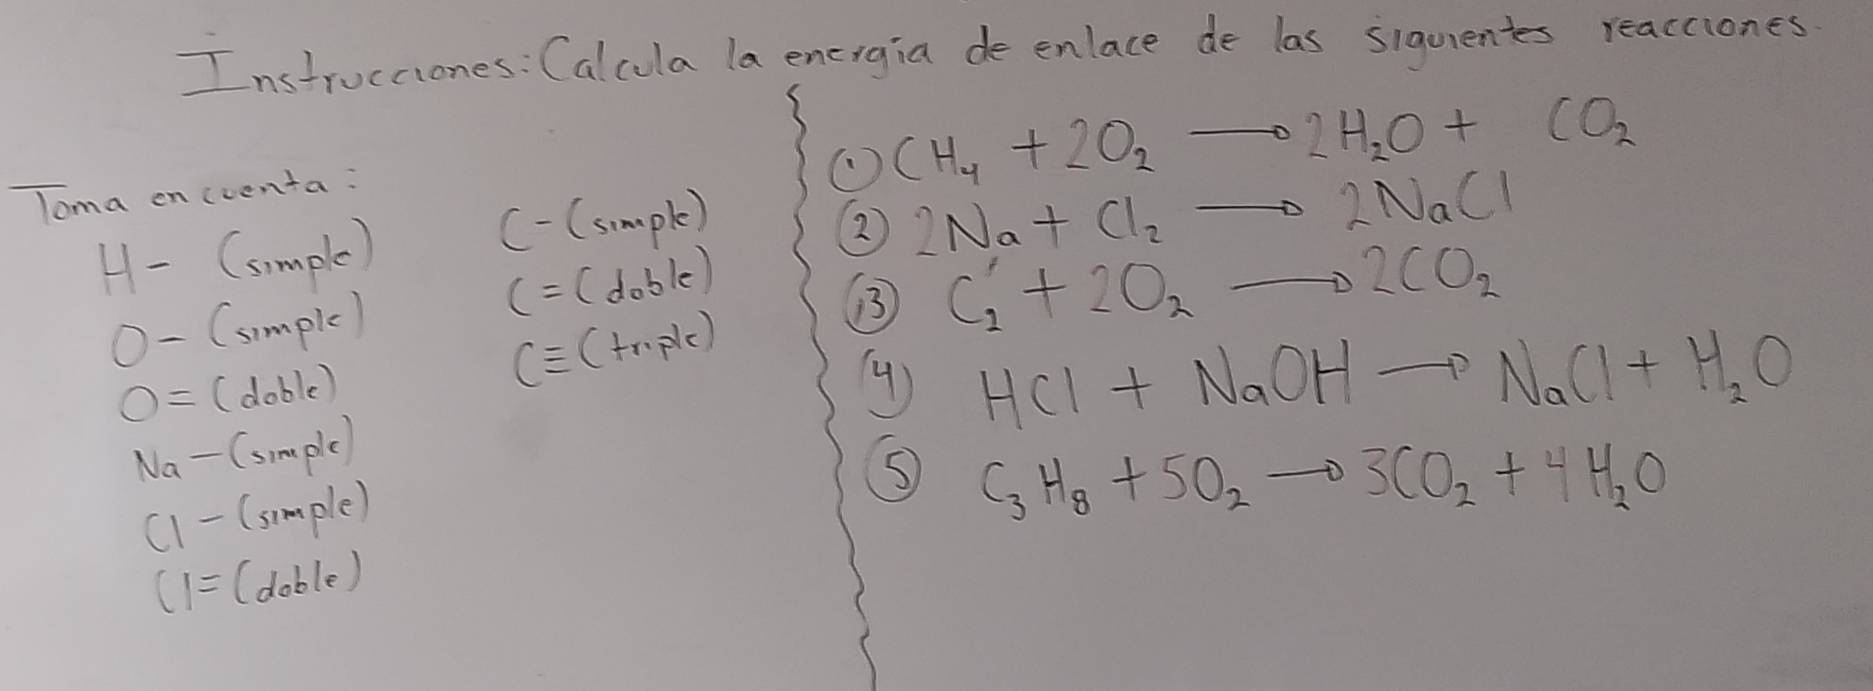 Instrucciones: Calcula la energía de enlace de las siguientes reacciones.
Toma en cuenta:
H- (simple)
O- (simple)
O= (doble)
Na- (simple)
Cl- (simple)
Cl= (doble)
C- (simple)
C= (doble)
C≡ (triple)
① CH₄ + 2O₂ → 2H₂O + CO₂
② 2Na + Cl₂ → 2NaCl
③ C₂ + 2O₂ → 2CO₂
④ HCl + NaOH → NaCl + H₂O
⑤ C₃H₈ + 5O₂ → 3CO₂ + 4H₂O